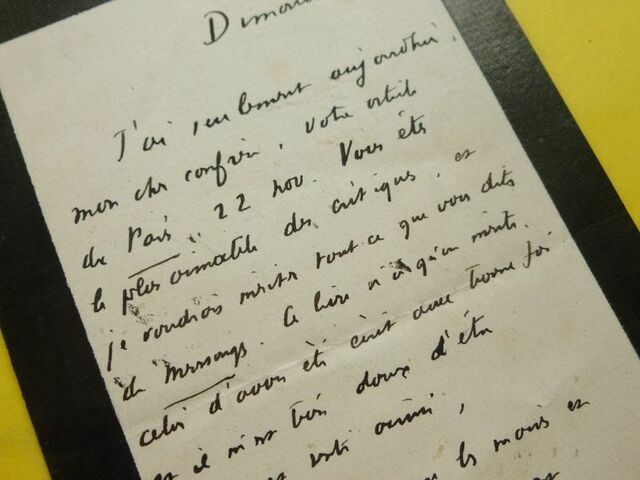 Diman
J'ai seulement aujourdhui,
mon cher confrère, votre article
de Paris, 22 nov. Vous êtes
le plus aimable des critiques, et
je voudrais mériter tout ce que vous dites
de Mensonges. Ce livre n'a qu'un mérite,
celui d'avoir été écrit avec bonne foi
et il m'est très doux d'être
senti ainsi,
les mois et